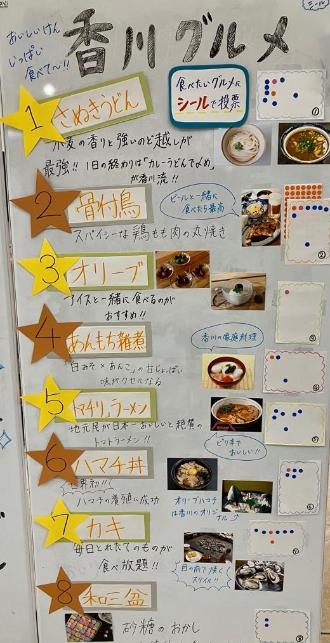 おいしいけん
いっぱい
食べて〜!!
香川グルメ
食べたいグルメに
シールで投票
1 さぬきうどん
小麦の香りと強いのど越しが
最強!! 1日の終わりは「カレーうどんで〆」
が香川流!!
①
2 骨付鳥
ビールと一緒に
食べたら最高
スパイシーな鶏もも肉の丸焼き
②
3 オリーブ
アイスと一緒に食べるのが
おすすめ!!
4 あんもち雑煮
香川の家庭料理
「白みそ×あんこ」の甘じょっぱい
味がクセになる
5 トマチリ。ラーメン
地元民が日本一おいしいと絶賛の
トマトラーメン!!
ピリ辛で
おいしい!!
6 ハマチ丼
世界初!!
ハマチの養殖に成功
オリーブハマチ
は香川のオリジナル
7 カキ
毎日とれたてのものが
食べ放題!!
目の前で焼く
スタイル!!
8 和三盆
砂糖のおかし